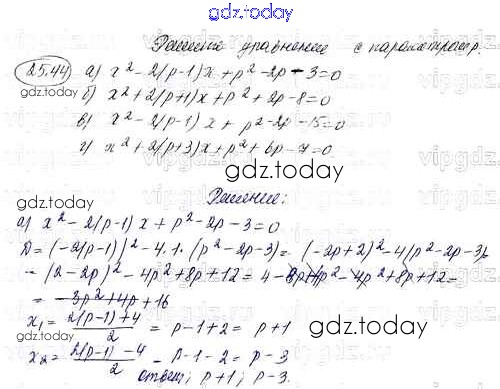 gdz.today
Решите уравнение с параметром р.
25.44 а) x² - 2(p-1)x + p² - 2p - 3 = 0
gdz.today
б) x² + 2(p+1)x + p² + 2p - 8 = 0
в) x² - 2(p-1)x + p² - 2p - 15 = 0
г) x² + 2(p+3)x + p² + 6p - 7 = 0
gdz.today
Решение:
gdz.today
а) x² - 2(p-1)x + p² - 2p - 3 = 0
D = (-2(p-1))² - 4·1·(p² - 2p - 3) = (-2p+2)² - 4(p² - 2p - 3) =
= (2-2p)² - 4p² + 8p + 12 = 4 - 8p + 4p² - 4p² + 8p + 12 =
= 16
x₁ = (2(p-1)+4)/2 = p-1+2 = p+1
gdz.today
x₂ = (2(p-1)-4)/2 = p-1-2 = p-3
ответ: p+1; p-3.
gdz.today